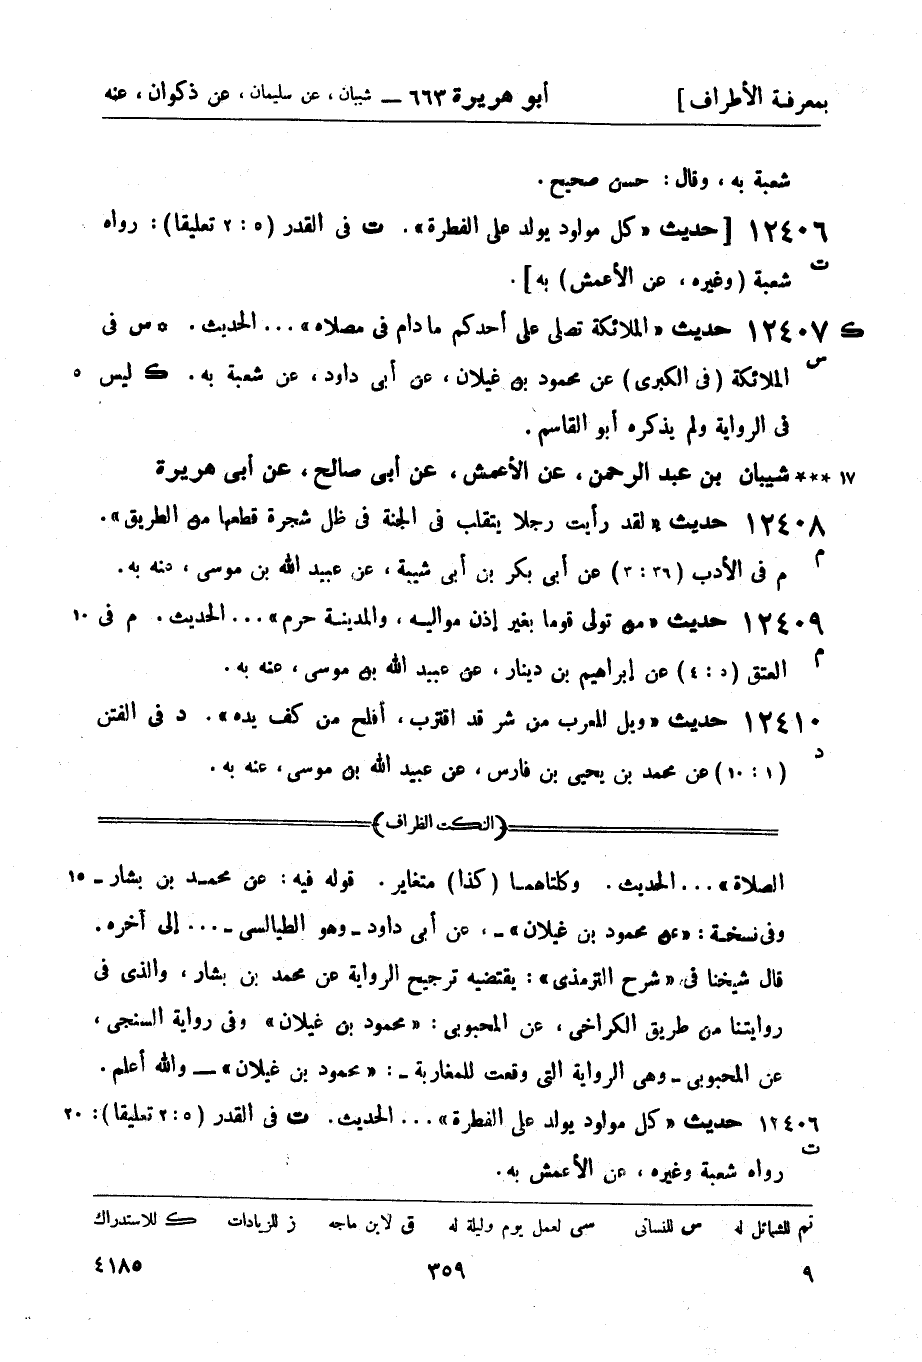 بمعرفة الأطراف ] أبو هريرة ٦٦٣ ـــ شيبان ، عن سليمان ، عن ذكوان ، عنه
شعبة به ، وقال : حسن صحيح .
١٢٤٠٦ [ حديث « كل مولود يولد على الفطرة » . ت فى القدر ( ٥ : ٢ تعليقا ) : رواه
ت
شعبة ( وغيره ، عن الأعمش ) به ] .
ك ١٢٤٠٧ حديث « الملائكة تصلى على أحدكم مادام فى مصلاه » ... الحديث . * س فى
س
الملائكة ( فى الكبرى ) عن محمود بن غيلان ، عن أبى داود ، عن شعبة به . ك ليس ٥
فى الرواية ولم يذكره أبو القاسم .
١٧ *** شيبان بن عبد الرحمن ، عن الأعمش ، عن أبى صالح ، عن أبى هريرة
١٢٤٠٨ حديث « لقد رأيت رجلا يتقلب فى الجنة فى ظل شجرة قطعها من الطريق » .
م
م فى الأدب ( ٣٦ : ٣ ) عن أبى بكر بن أبى شيبة ، عن عبيد الله بن موسى ، عنه به .
١٢٤٠٩ حديث « من تولى قوما بغير إذن مواليه ، والمدينة حرم » ... الحديث . م فى ١٠
م
العتق ( ٥ : ٤ ) عن إبراهيم بن دينار ، عن عبيد الله بن موسى ، عنه به .
١٢٤١٠ حديث « ويل للعرب من شر قد اقترب ، أفلح من كف يده » . د فى الفتن
د
( ١ : ١٠ ) عن محمد بن يحيى بن فارس ، عن عبيد الله بن موسى ، عنه به .
( النكت الظراف )
الصلاة » ... الحديث . وكلتاهما ( كذا ) متغاير . قوله فيه : عن محمد بن بشار ـ ١٥
وفى نسخة : « عن محمود بن غيلان » ـ ، عن أبى داود ـ وهو الطيالسى ـ ... إلى آخره .
قال شيخنا فى « شرح الترمذى » : يقتضيه ترجيح الرواية عن محمد بن بشار ، والذى فى
روايتنا من طريق الكراخى ، عن المحبوبى : « محمود بن غيلان » وفى رواية السنجى ،
عن المحبوبى ـ وهى الرواية التى وقعت للمغاربة ـ : « محمود بن غيلان » ـــ والله أعلم .
١٢٤٠٦ حديث « كل مولود يولد على الفطرة » ... الحديث . ت فى القدر ( ٥ : ٢ تعليقا ) : ٢٠
ت
رواه شعبة وغيره ، عن الأعمش به .
تم للشمائل له س للنسائى سى لعمل يوم وليلة له ق لابن ماجه ز للزيادات ك للاستدراك
٩ ٣٥٩ ٤١٨٥